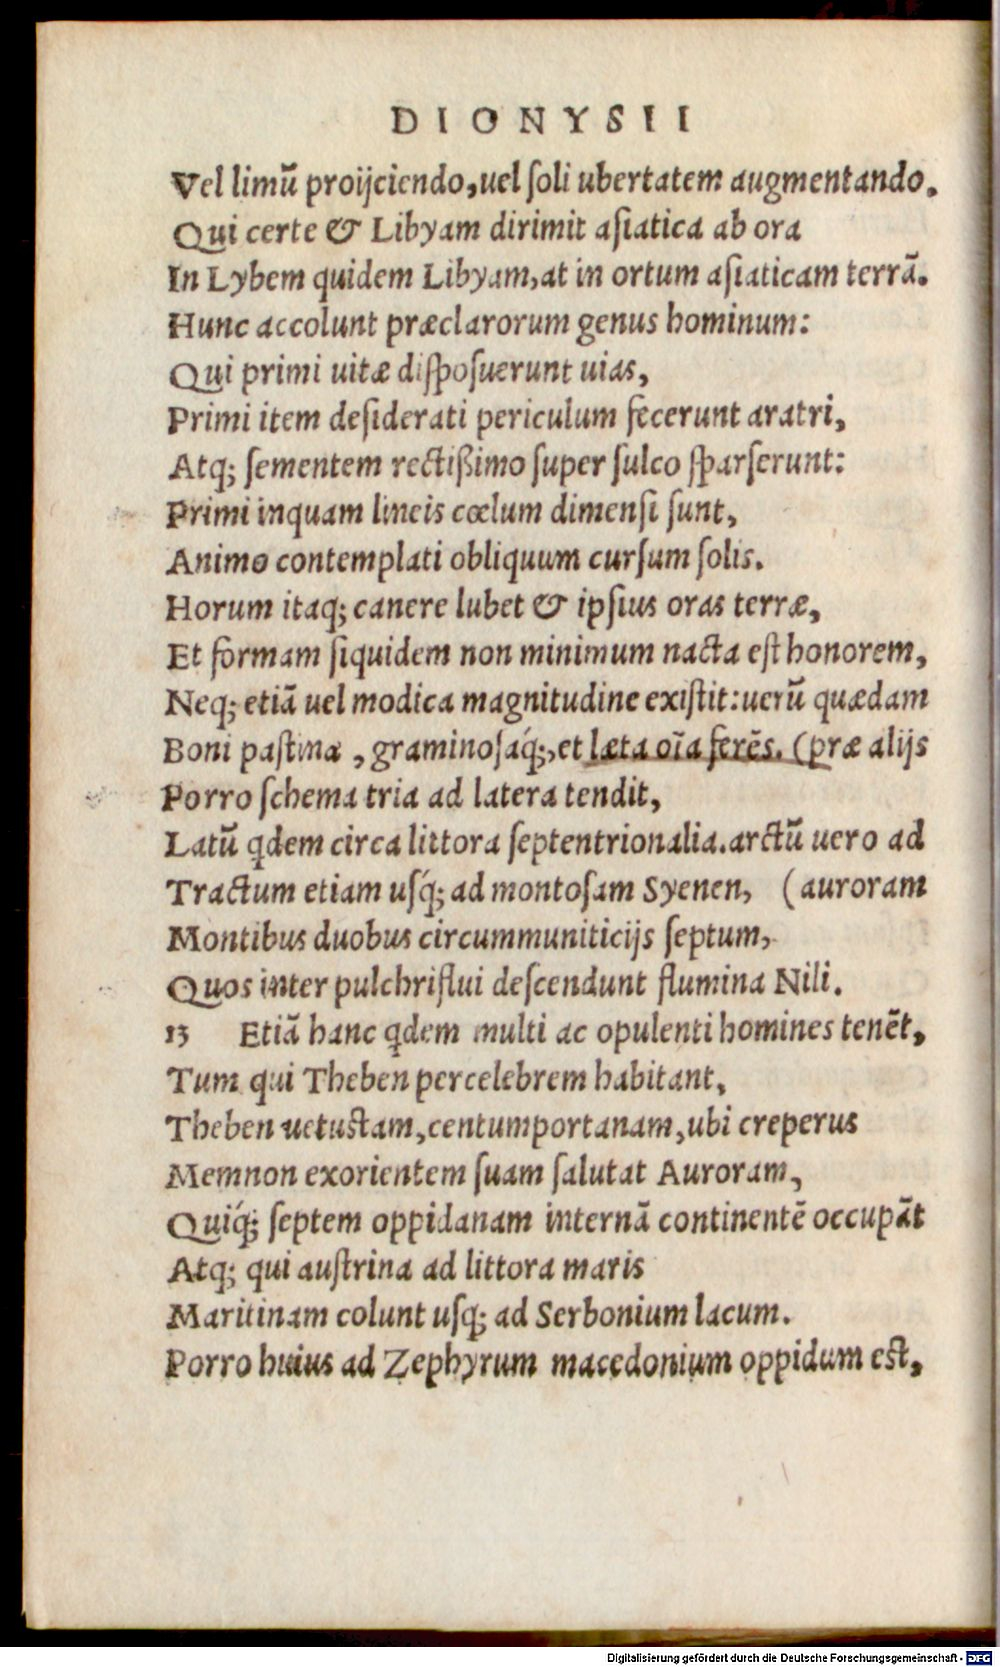 DIONYSII
Vel limū proijciendo, uel ſoli ubertatem augmentando.
Qui certe & Libyam dirimit aſiatica ab ora
In Lybem quidem Libyam, at in ortum aſiaticam terrā.
Hunc accolunt præclarorum genus hominum:
Qui primi uitæ diſpoſuerunt uias,
Primi item deſiderati periculum fecerunt aratri,
Atq; ſementem rectißimo ſuper ſulco ſparſerunt:
Primi inquam lineis cœlum dimenſi ſunt,
Animo contemplati obliquum curſum ſolis.
Horum itaq; canere lubet & ipſius oras terræ,
Et formam ſiquidem non minimum nacta eſt honorem,
Neq; etiā uel modica magnitudine exiſtit: uerū quædam
Boni paſtina, graminoſaq́;, et læta oīa ferēs. (præ alijs
Porro ſchema tria ad latera tendit,
Latū q̄dem circa littora ſeptentrionalia. arctū uero ad
Tractum etiam uſq́; ad montoſam Syenen, (auroram
Montibus duobus circummuniticijs ſeptum,
Quos inter pulchriflui deſcendunt flumina Nili.
13 Etiā hanc q̄dem multi ac opulenti homines tenēt,
Tum qui Theben percelebrem habitant,
Theben uetuſtam, centumportanam, ubi creperus
Memnon exorientem ſuam ſalutat Auroram,
Quiq́; ſeptem oppidanam internā continentē occupāt
Atq; qui auſtrina ad littora maris
Maritinam colunt uſq; ad Serbonium lacum.
Porro huius ad Zephyrum macedonium oppidum eſt,
Digitalisierung gefördert durch die Deutsche Forschungsgemeinschaft - DFG